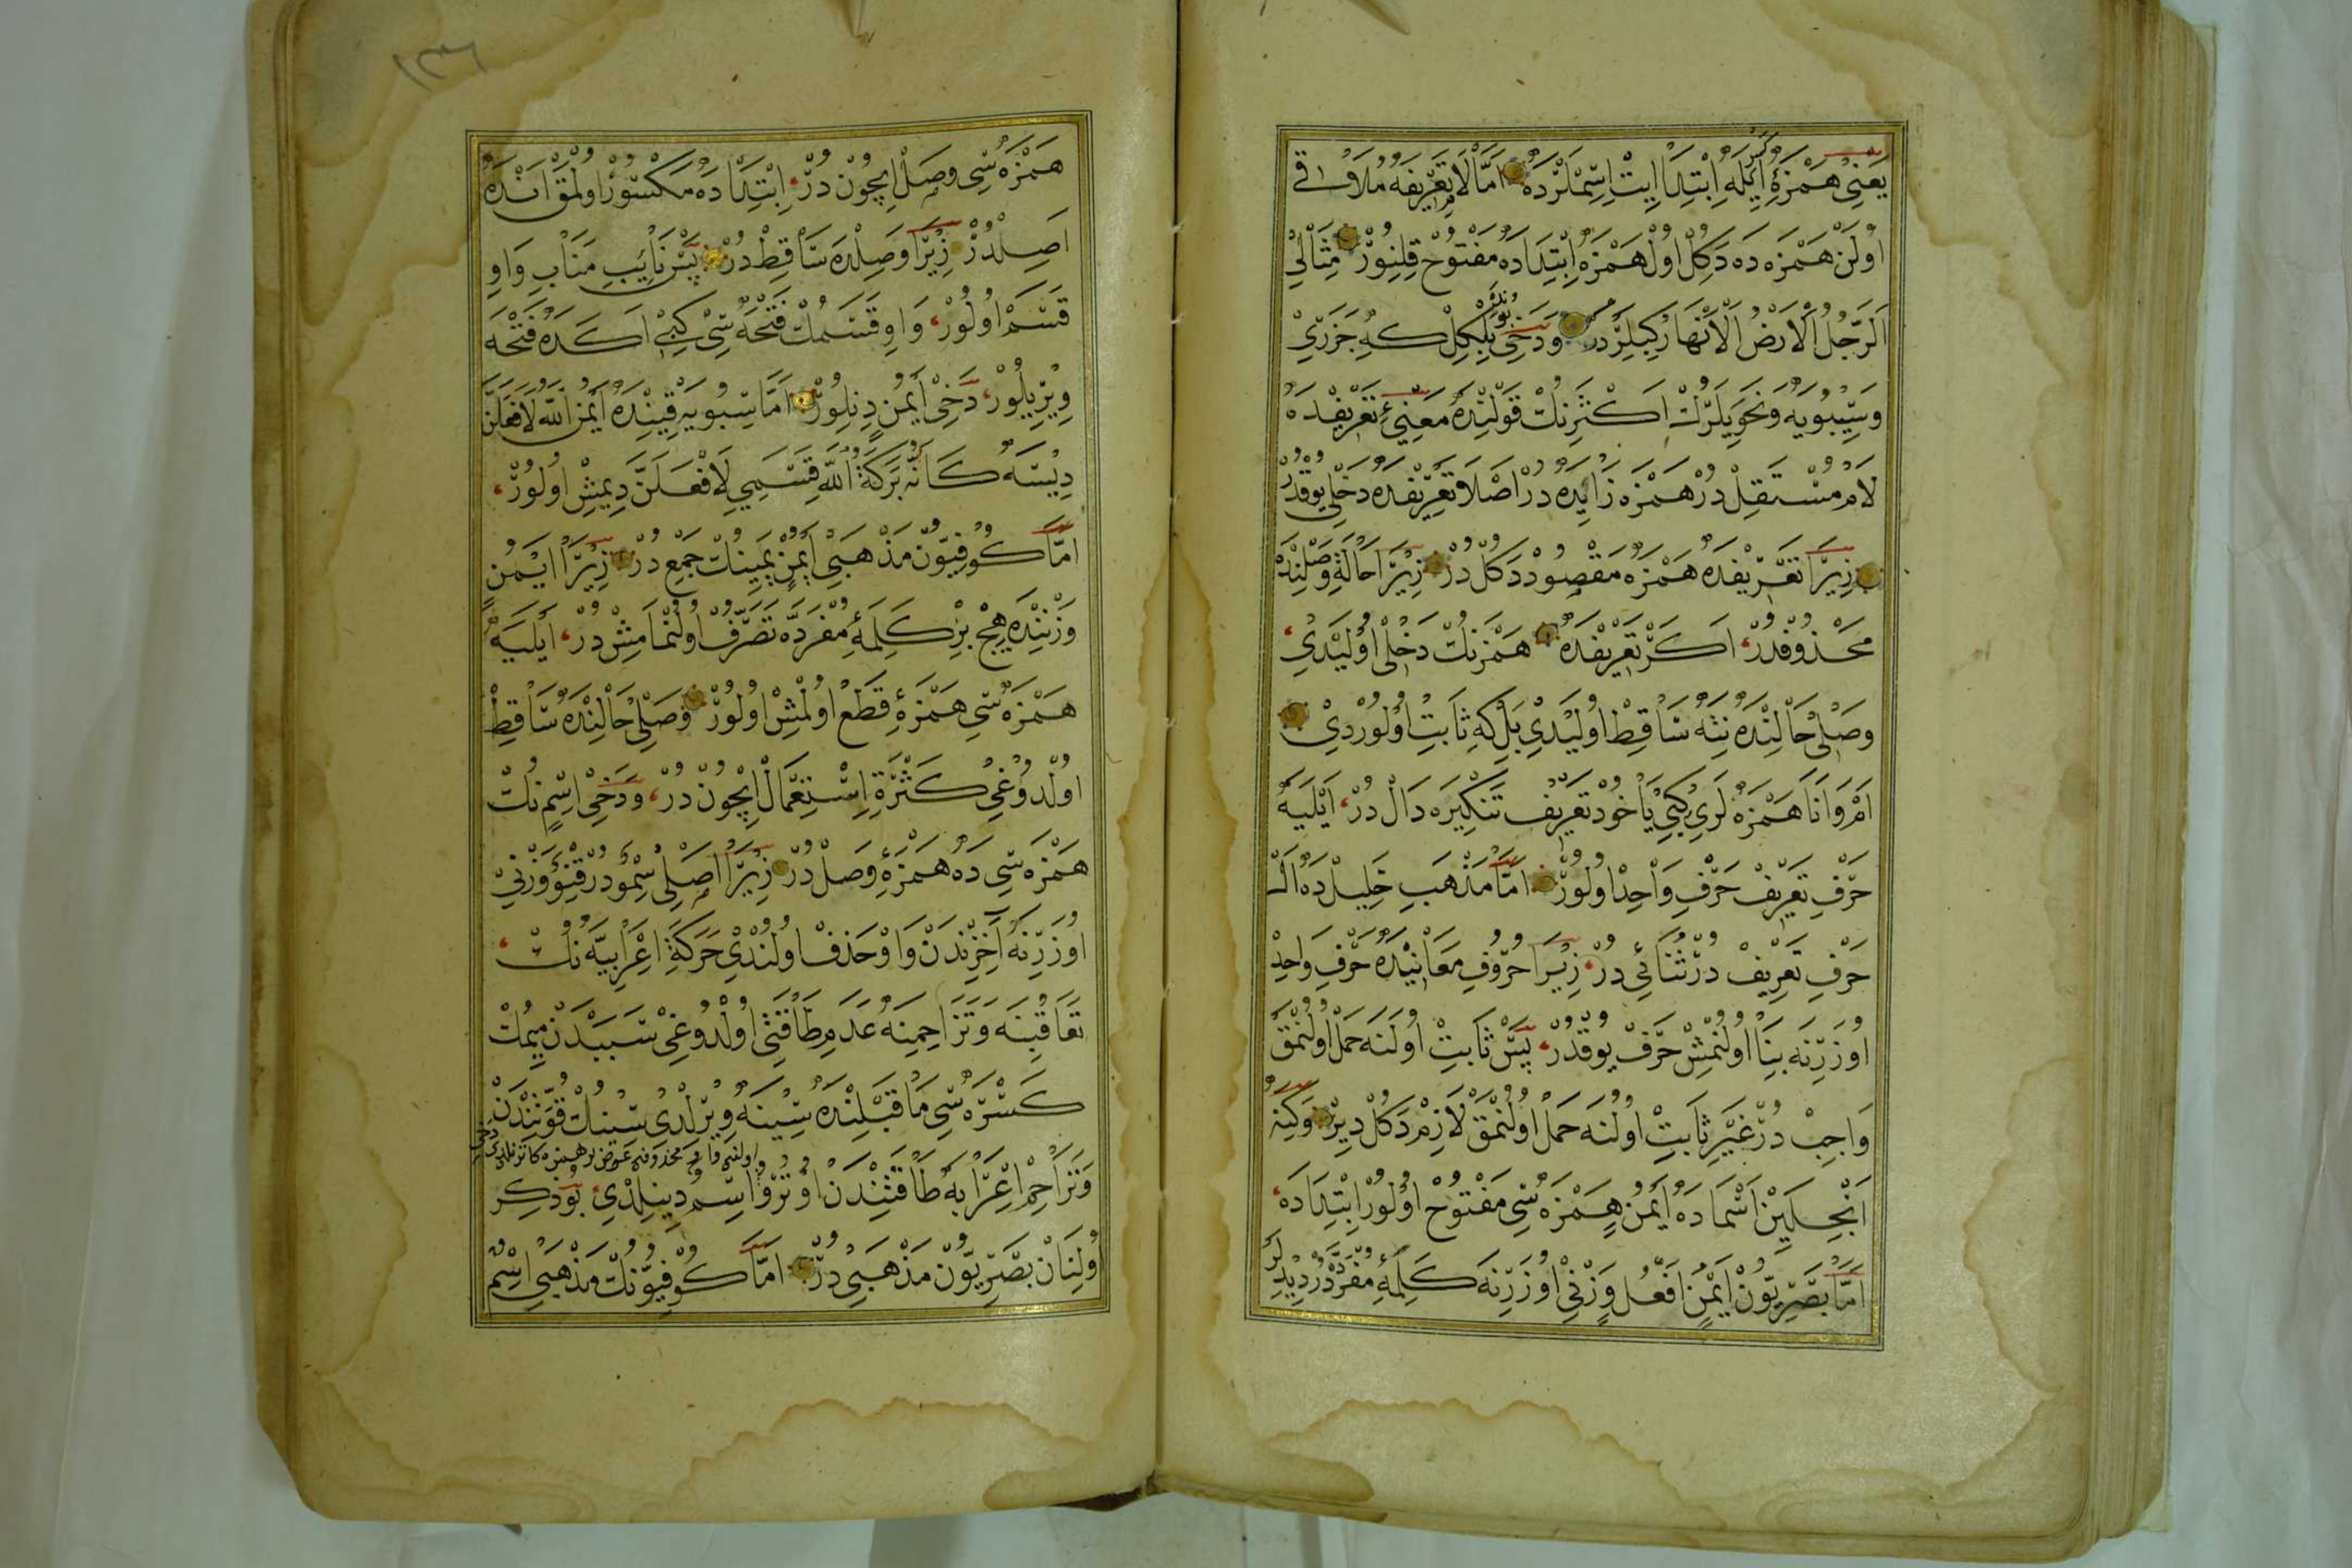 يعني همزۀ ايله ابتدا ايت اسملرده اما لام تعريفه ملاقى
اولن همزه ده دكل اول همزه ابتداده مفتوح قلنور مثالى
الرجل الارض الانهار كبيلردر و دخى بلكل كه جزرى
و سيبويه و نحويلرك اكثرنك قولنده معنئ تعريفده
لام مستقل در همزه زايده در اصلا تعريفده دخلى يوقدر
زيرا تعريفده همزه مقصود دكل در زيرا حالة وصلنده
محذوفدر اكر تعريفده همزنك دخلى اوليدى
وصلى حالنده نته ساقط اوليدى بلكه ثابت اولوردى
ام و انا همزه لرى كبى يا خود تعريف تنكيره دال در ايليه
حرف تعريف حرف واحد اولور اما مذهب خليل ده ال
حرف تعريف در ثنائى در زيرا حروف معانيده حرف واحد
اوزرنه بنا اولنمش حرف يوقدر پس ثابت اولنه حمل اولنمق
واجب در غير ثابت اولنه حمل اولنمق لازم دكل دير و كنه
انجلين اسماده ايمن همزه سى مفتوح اولور ابتداده
اما بصريون ايمن افعل وزنى اوزرنه كلمۀ مفرده در ديديلر
١٣٦
همزه سى وصل ايچون در ابتداده مكسور اولمق انده
اصلدر زيرا وصلده ساقط در پس نايب مناب واو
قسم اولور واو قسمك فتحه سى كبى اكده فتحه
ويريلور دخى ايمن دنلور اما سيبويه قتنده ايمن الله لافعلن
ديسه كانه بركة الله قسمى لافعلن ديمش اولور
اما كوفيون مذهبى ايمن يمينك جمع در زيرا ايمن
وزننده هيچ بر كلمۀ مفرده تصرف اولنمامش در ايليه
همزه سى همزۀ قطع اولمش اولور وصلى حالنده ساقط
اولدوغى كثرة استعمال ايچون در و دخى اسم نك
همزه سى ده همزۀ وصل در زيرا اصلى سمو در قنو وزنى
اوزرنه آخرندن واو حذف اولندى حركة اعرابيه نك
تعاقبنه و تزاحمنه عدم طاقتى اولدوغى سببدن ميمك
كسره سى ما قبلنده سينه ويرلدى سينك قوتندن
اولنمى واو محذوفه عوض بر همزه كاتورلدى دخى
و تزاحم اعرابه طاقتندن اوترو اسم دينلدى بو ذكر
اولنان بصريون مذهبى در اما كوفيونك مذهبى اسم